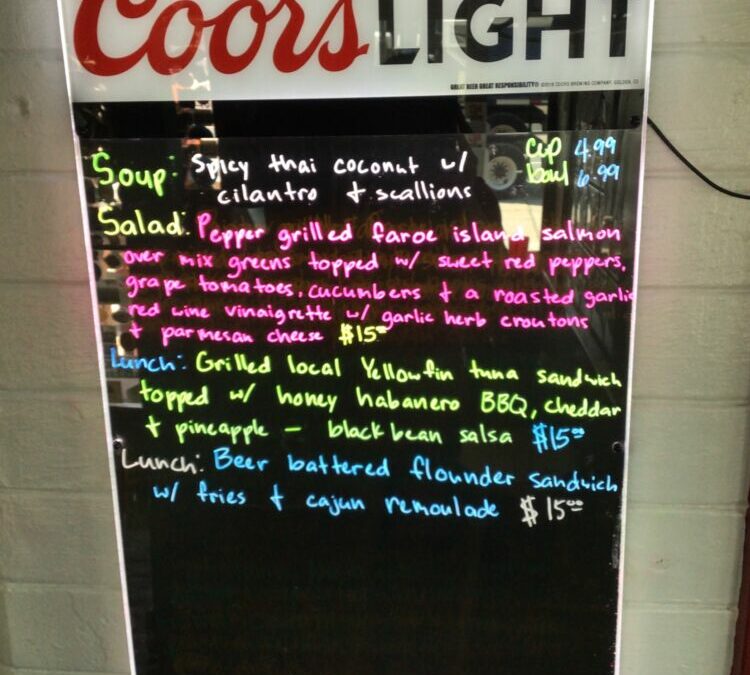 Coors LIGHT
GREAT BEER GREAT RESPONSIBILITY® ©2018 COORS BREWING COMPANY, GOLDEN, CO
Soup: Spicy thai coconut w/ cup 4.99
cilantro + scallions bowl 6.99
Salad: Pepper grilled faroe island salmon
over mix greens topped w/ sweet red peppers,
grape tomatoes, cucumbers + a roasted garlic
red wine vinaigrette w/ garlic herb croutons
+ parmesan cheese $15.00
Lunch: Grilled local Yellowfin tuna sandwich
topped w/ honey habanero BBQ, cheddar
+ pineapple - black bean salsa $15.00
Lunch: Beer battered flounder sandwich
w/ fries + cajun remoulade $15.00